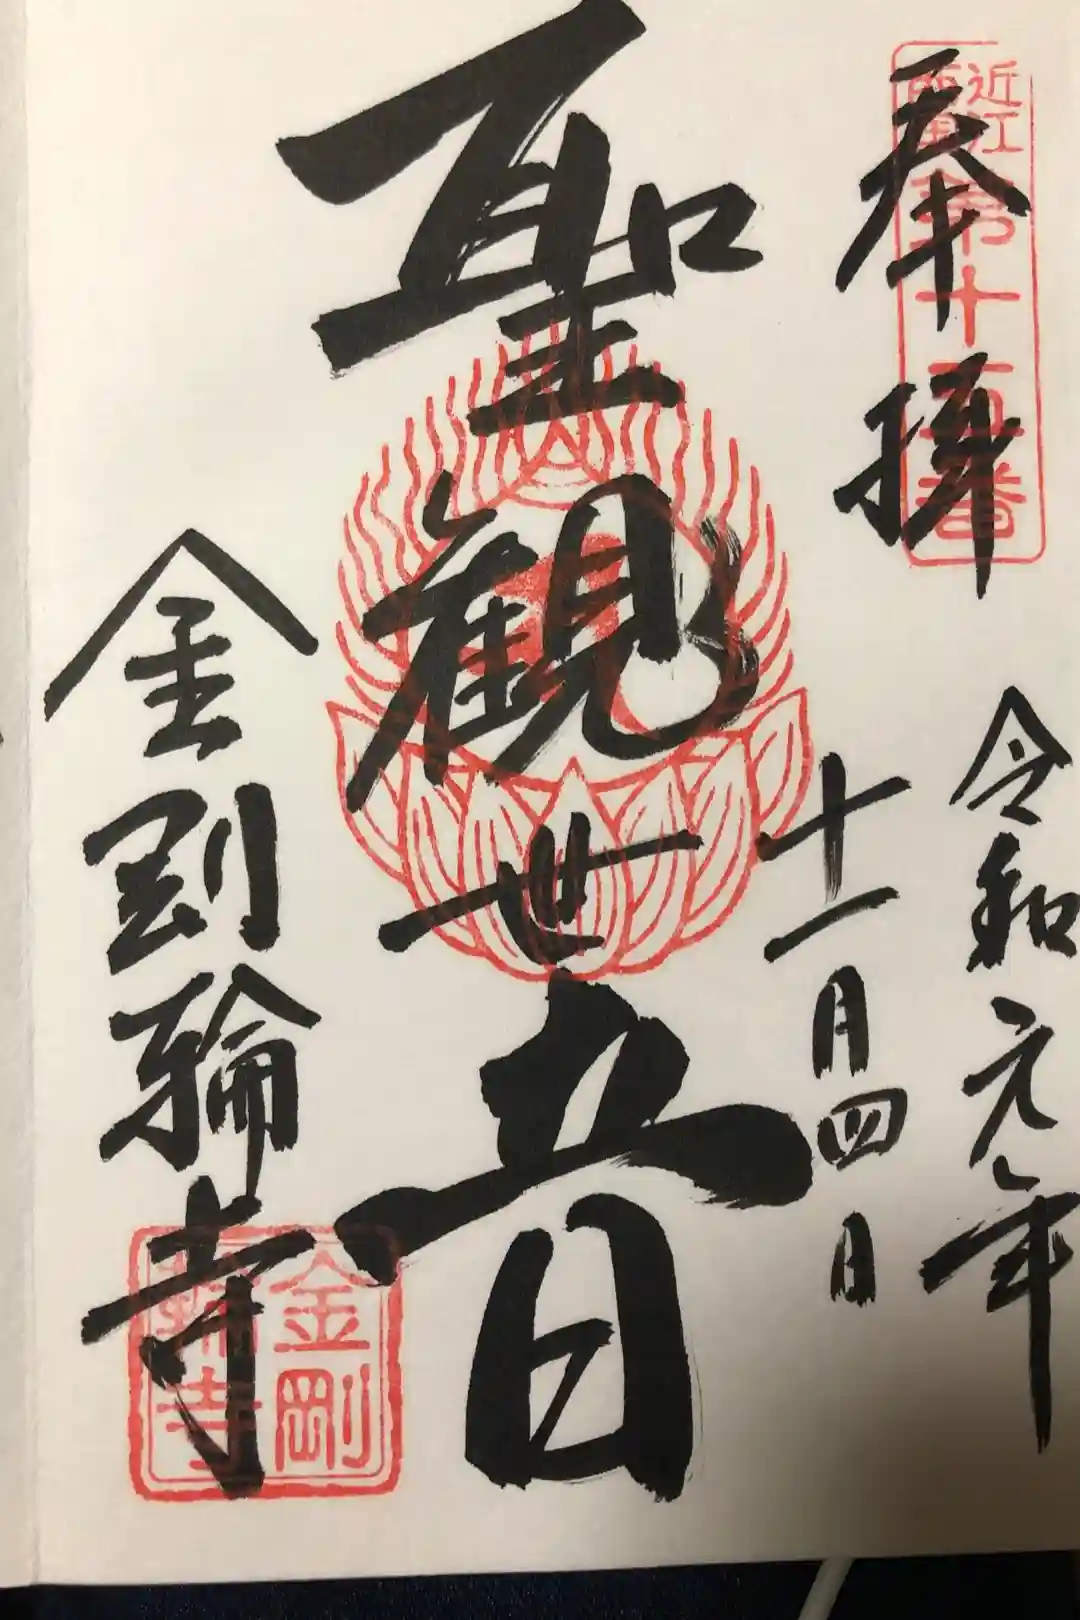 奉拝
近江
西国
第十五番
令和元年
十一月四日
聖観世音
金剛輪寺
金剛
輪寺